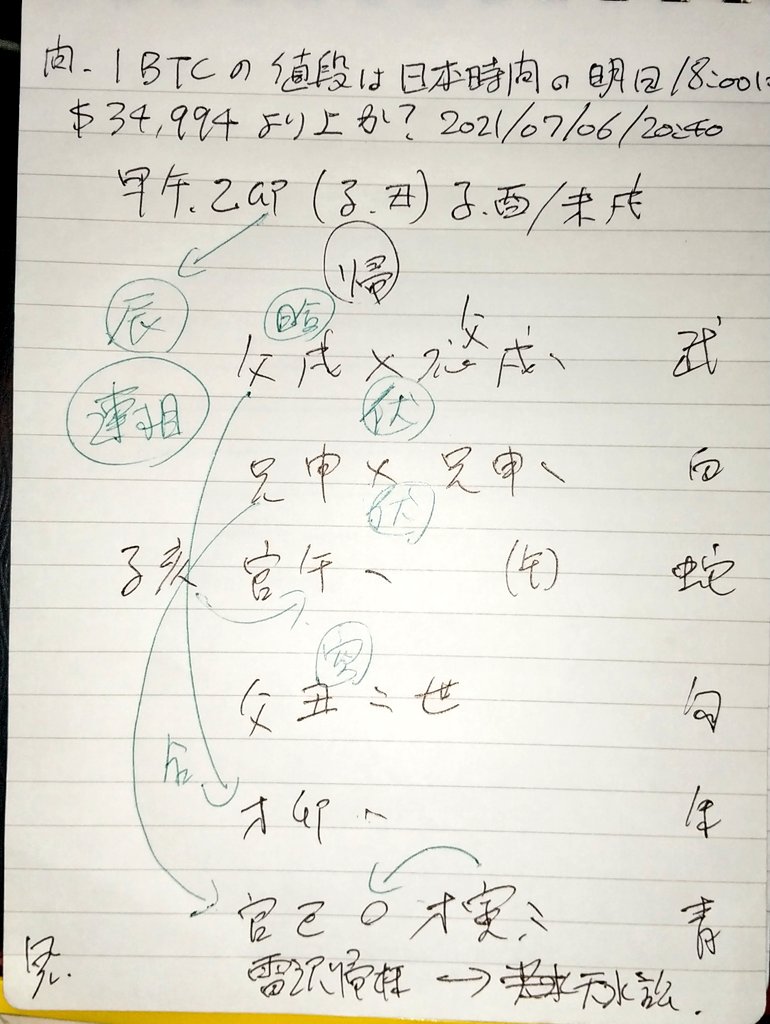 問. 1BTCの値段は日本時間の明日18:00に
$34,994より上か? 2021/07/06/20:40
甲午.乙卯(子.丑)子.酉/未戌
帰
辰 暗
父戌×父戌、 武
連相 伏
兄申×兄申、 白
伏
子亥 官午、 (午) 蛇
空
父丑ミ世 勾
合
才卯、 朱
官巳○才寅ミ 青
雷沢帰妹←→天水訟.